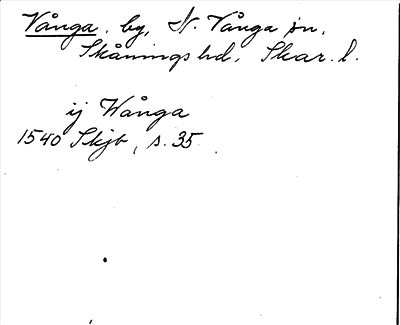 Vånga. by, N. Vånga sn,
Skånings hd, Skar. l.
ij Wånga
1540 Skjb, s. 35